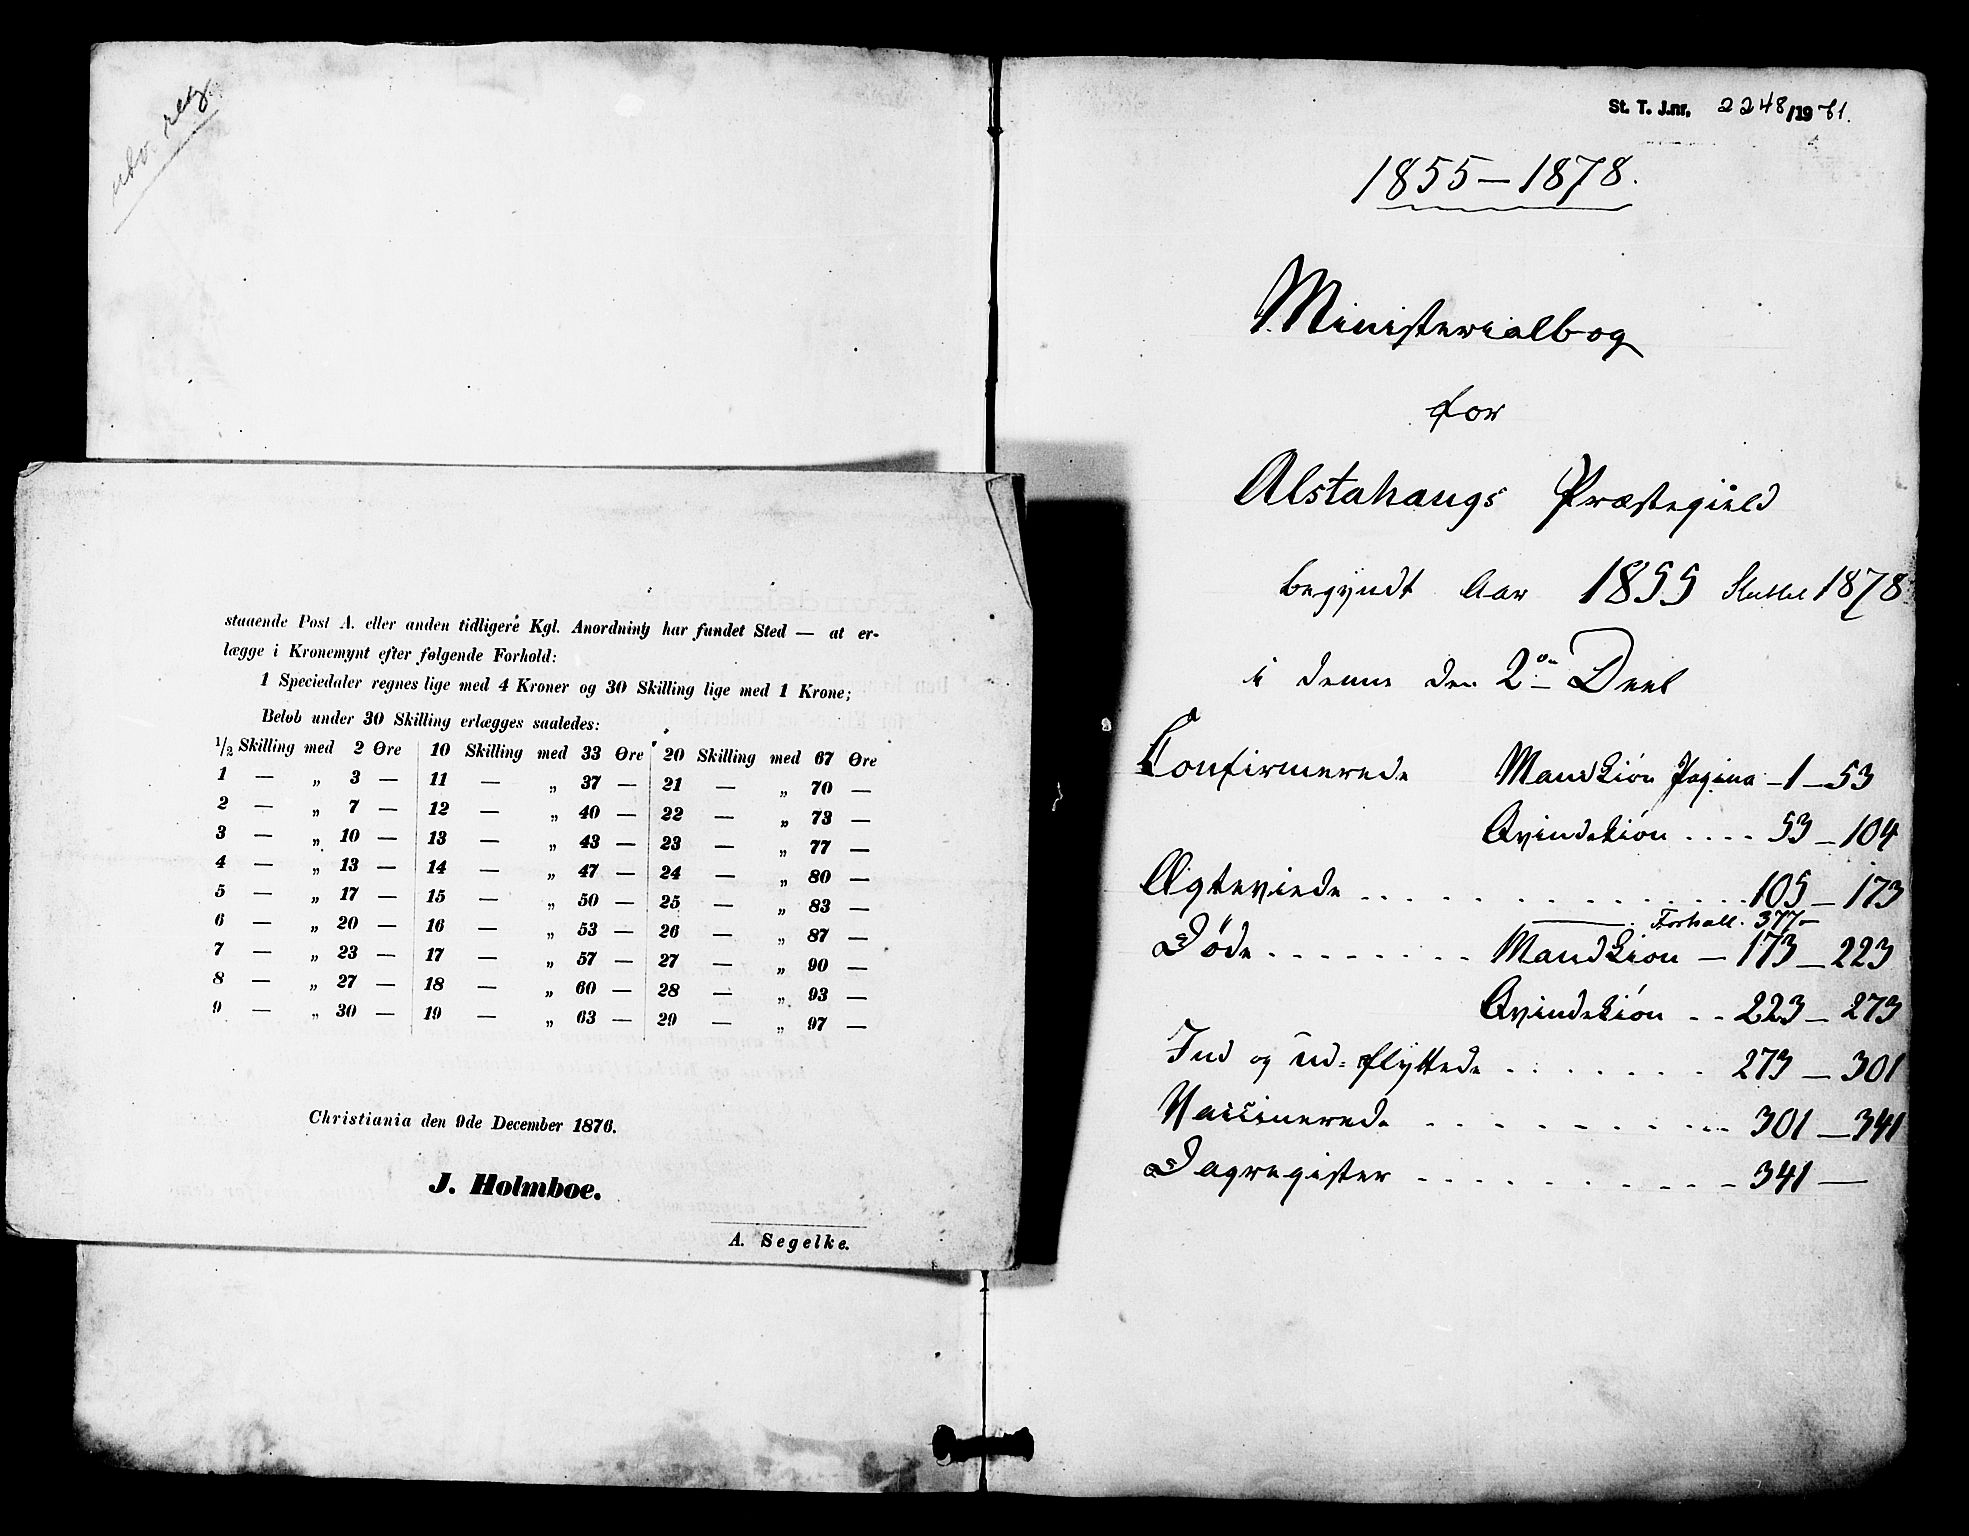 staaende Post A. eller anden tidligere Kgl. Anordning har fundet Sted — at er-
lægge i Kronemynt efter følgende Forhold:
1 Speciedaler regnes lige med 4 Kroner og 30 Skilling lige med 1 Krone;
Beløb under 30 Skilling erlægges saaledes:
1/2 Skilling med 2 Øre 10 Skilling med 33 Øre 20 Skilling med 67 Øre
1 — „ 3 — 11 — „ 37 — 21 — „ 70 —
2 — „ 7 — 12 — „ 40 — 22 — „ 73 —
3 — „ 10 — 13 — „ 43 — 23 — „ 77 —
4 — „ 13 — 14 — „ 47 — 24 — „ 80 —
5 — „ 17 — 15 — „ 50 — 25 — „ 83 —
6 — „ 20 — 16 — „ 53 — 26 — „ 87 —
7 — „ 23 — 17 — „ 57 — 27 — „ 90 —
8 — „ 27 — 18 — „ 60 — 28 — „ 93 —
9 — „ 30 — 19 — „ 63 — 29 — „ 97 —
Christiania den 9de December 1876.
J. Holmboe.
A. Segelke.
St. T. J.nr. 2248/1961.
1855–1878.
Ministerialbog
for
Alstahaugs Præstegield
begyndt Aar 1855 Sluttet 1878
i denne den 2en Deel
Confirmerede Mandkiøn Pagina – 1 – 53
Qvindekiøn .... 53 – 104
Ægteviede ........ 105 – 173
377–
Døde ........ Mandkiøn – 173 – 223
Qvindekiøn .. 223 – 273
Ind og ud= flyttede ....... 273 – 301
Vaccinerede ......... 301 – 341
Dagregister ......... 341 –